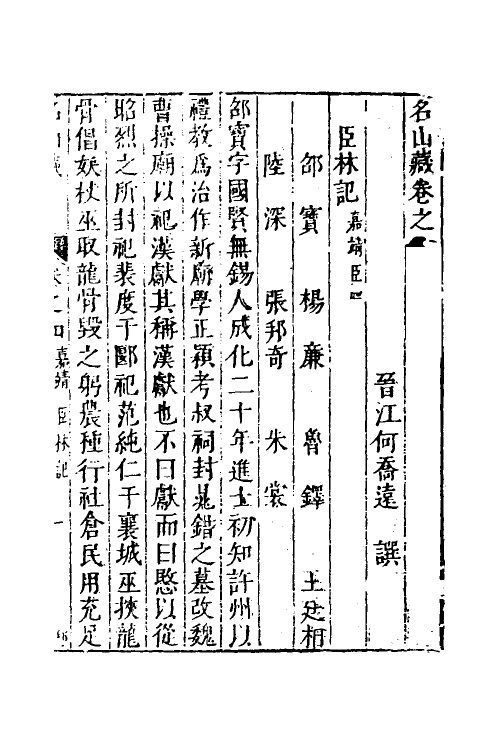 名山藏卷之
晉江何喬遠 譔
臣林記 嘉靖臣
邵寶 楊廉 魯鐸 王廷相
陸深 張邦奇 朱裳
邵寶字國賢無錫人成化二十年進士初知許州以
禮教爲治作新廟學正潁考叔祠封晁錯之墓改魏
曹操廟以祀漢獻其稱漢獻也不曰獻而曰愍以從
昭烈之所封祀裴度于郾祀范純仁于襄城巫挾龍
骨倡妖杖巫取龍骨毀之躬農種行社倉民用充足
名山藏 卷之 嘉靖 臣林記 一